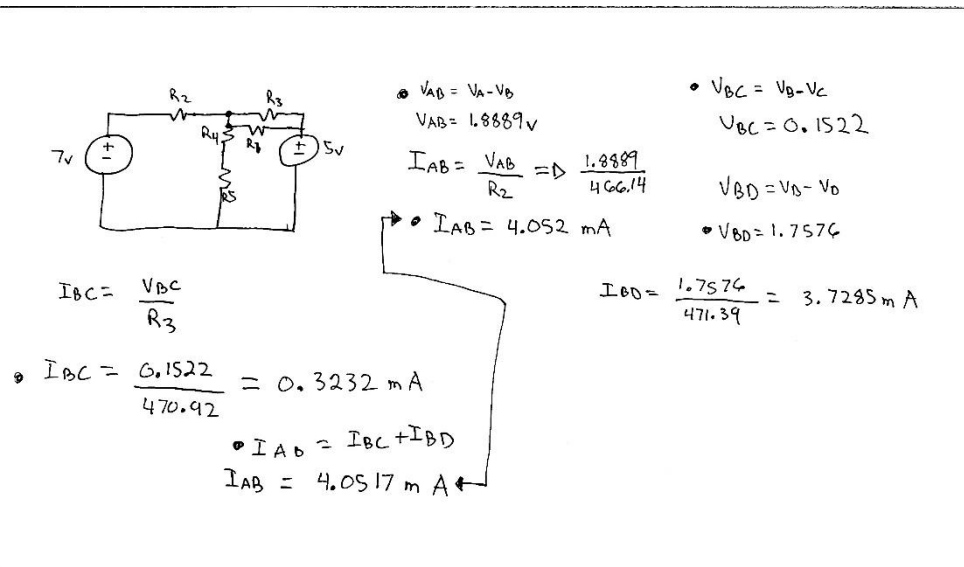 R2
R3
R4
R8
R5
7v
5v
• VAB = VA-VB
VAB = 1.8889v
IAB = VAB / R2 => 1.8889 / 466.14
• IAB = 4.052 mA
• VBC = VB-VC
VBC = 0.1522
VBD = VB-VD
• VBD = 1.7576
IBD = 1.7576 / 471.39 = 3.7285 m A
IBC = VBC / R3
• IBC = 0.1522 / 470.92 = 0.3232 mA
• IAB = IBC + IBD
IAB = 4.0517 m A